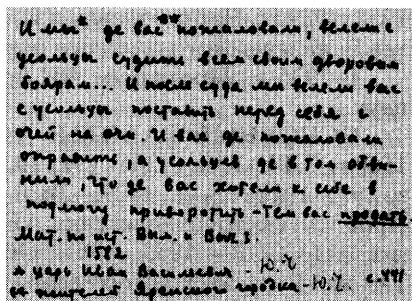 И мы* де вас** пожаловали, велели с
усольцы судити всем своим дворовым
боярам... И после суда мы велели вас
с усольцы поставить перед себя с
очей на очи. И вас де пожаловали
оправити, а усольцев де в том обви-
нили, что де вас хотели к себе в
подмогу приворотить - тем вас продать.
Мат. по ист. Вым. и Выч.
1582
* царь Иван Васильевич - Ю.Ч.
** жителей Яренского городка - Ю.Ч. с.441